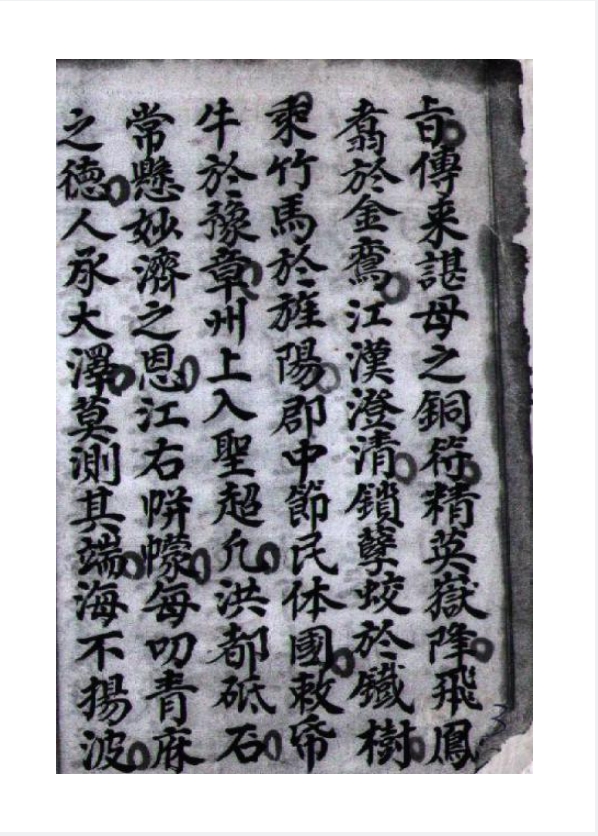 㫖傳来諶母之銅符精英嶽降飛鳳
翥於金鸞江漢澄清鎖孽蛟於鐵樹
乘竹馬於旌陽郡中節民体國敕帝
牛於豫章州上入聖超凢洪都砥石
常懸妙濟之恩江右帡幪每叨青麻
之德人承大澤莫測其端海不揚波